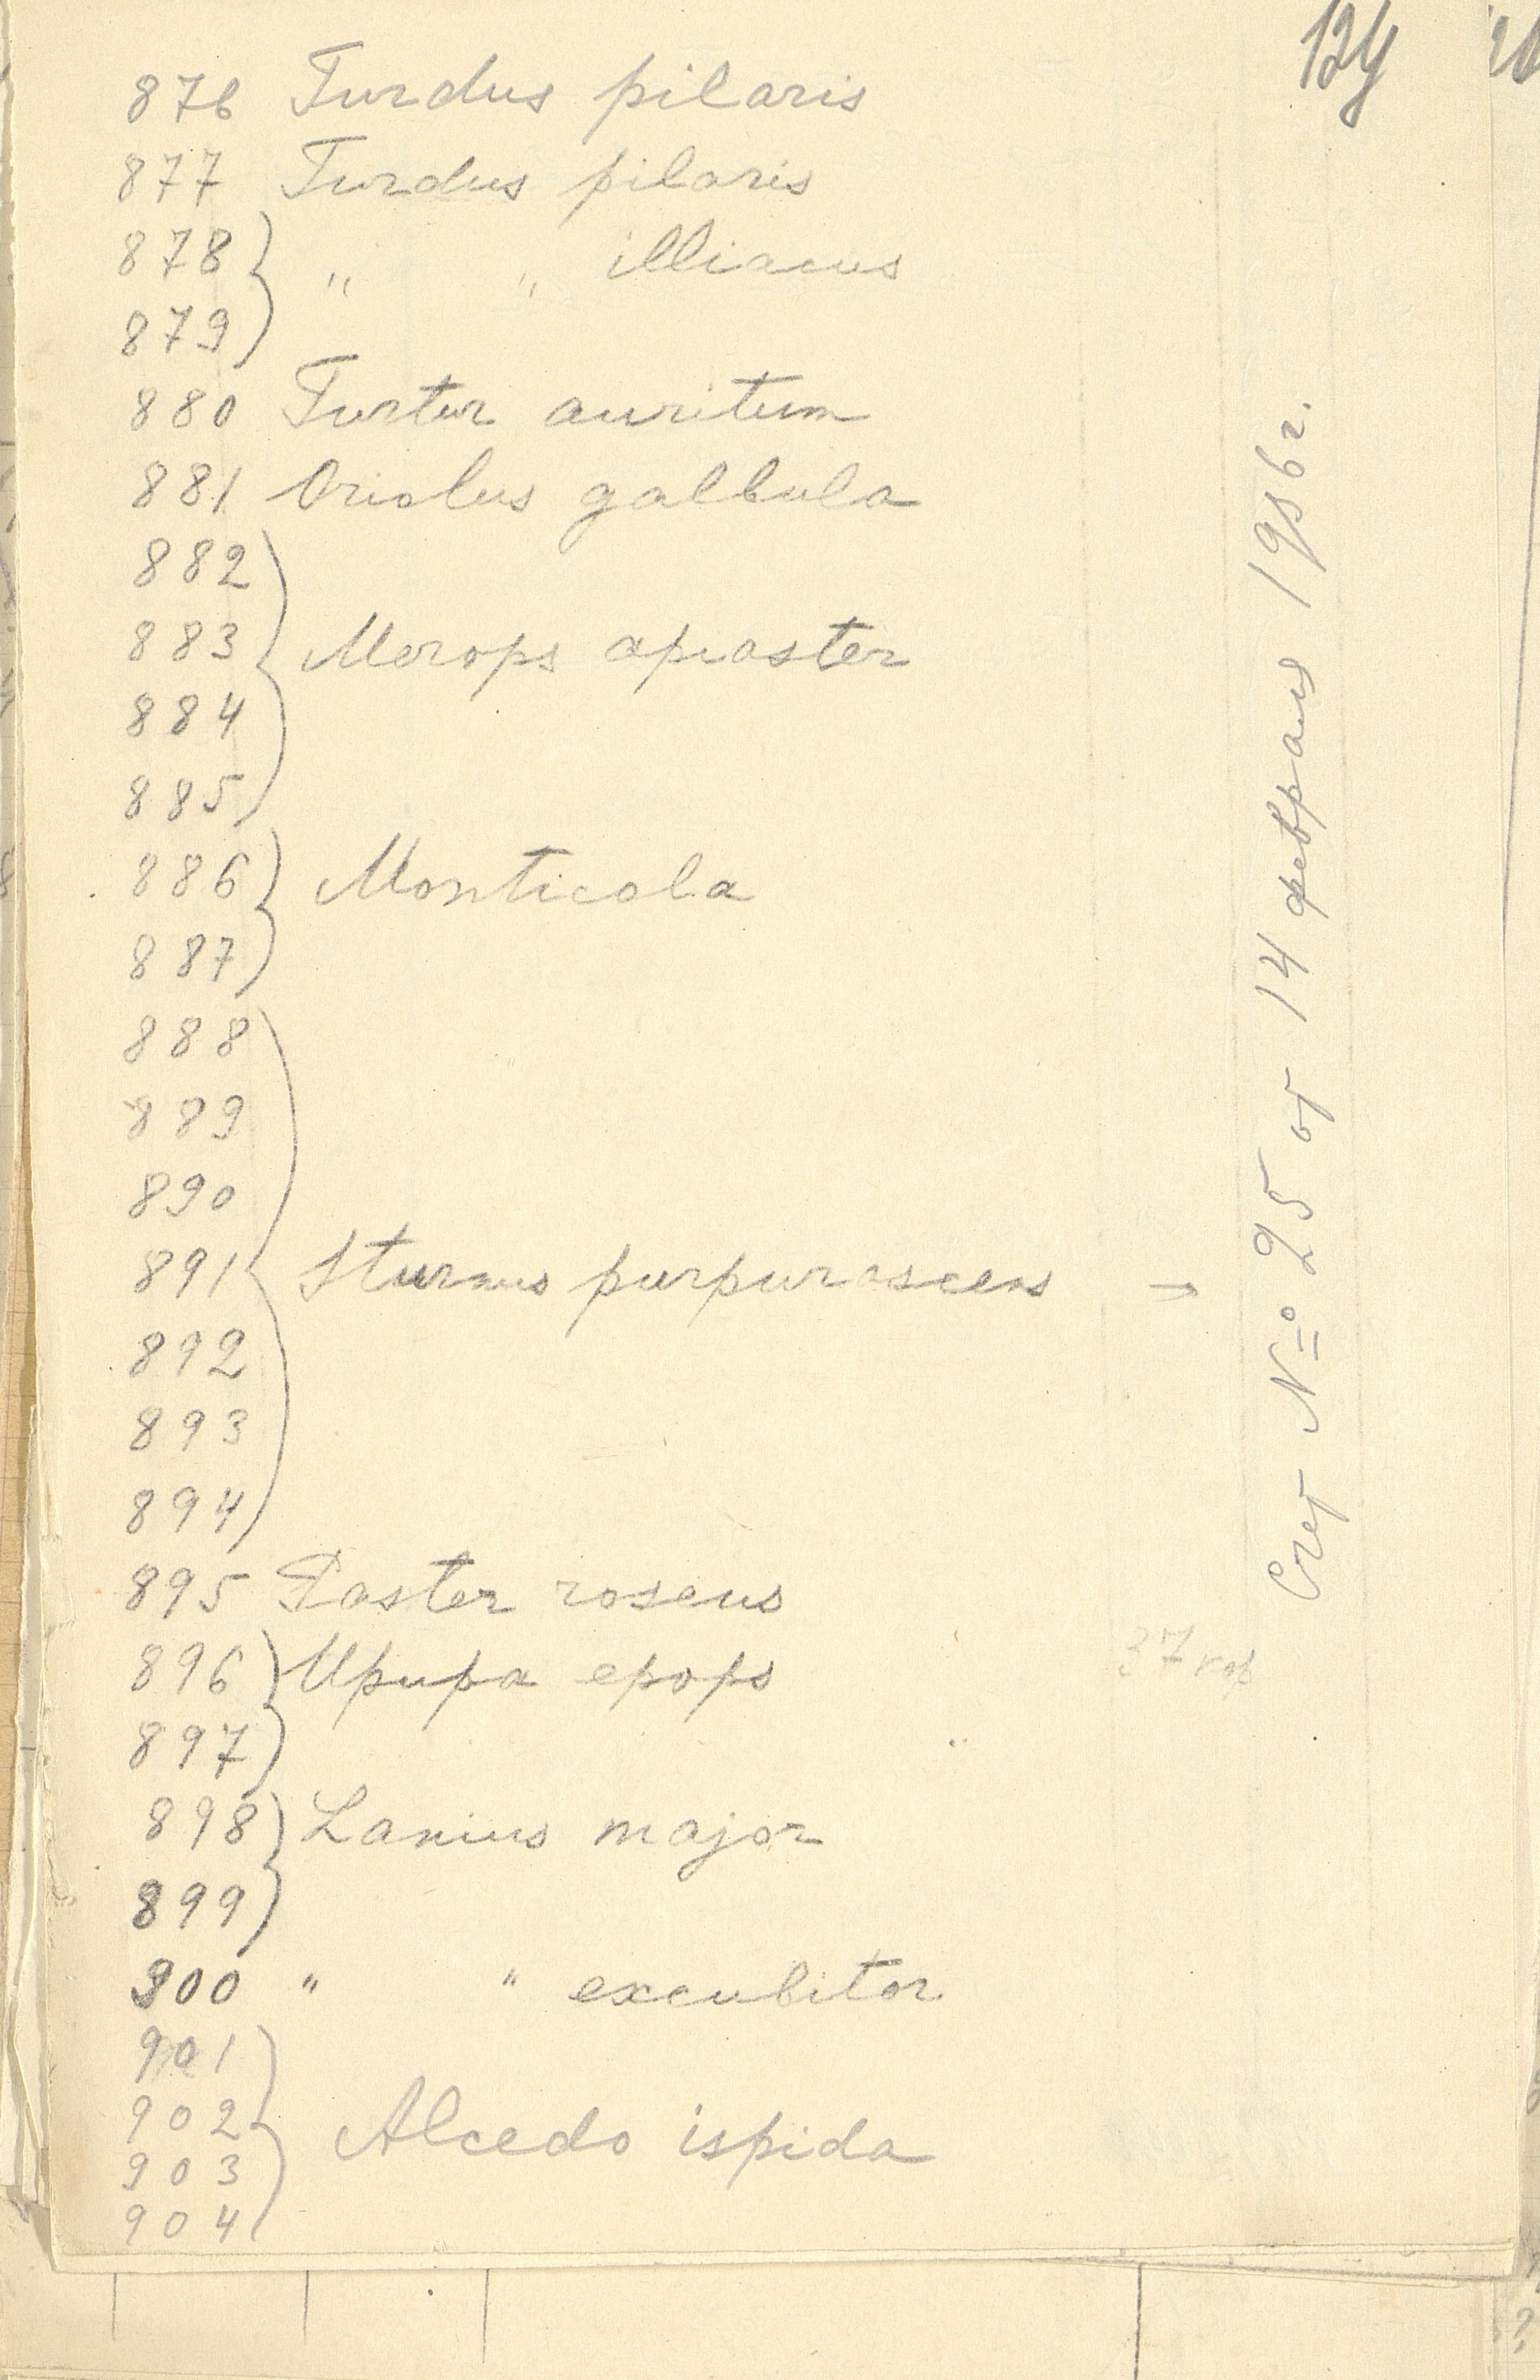 124
876 Turdus pilaris
877 Turdus pilaris
878 " " illiacus
879
880 Turtur auritum
881 Oriolus galbula
882
883 Merops apiaster
884
885
886 Monticola
887
888
889
890
891 Sturnus purpurascens
892
893
894
895 Paster roseus
896 Upupa epops
897
898 Lanius major
899
900 " " excubitor
901
902 Alcedo ispida
903
904
Счет № 25 от 14 февраля 1956 г.
37 кор